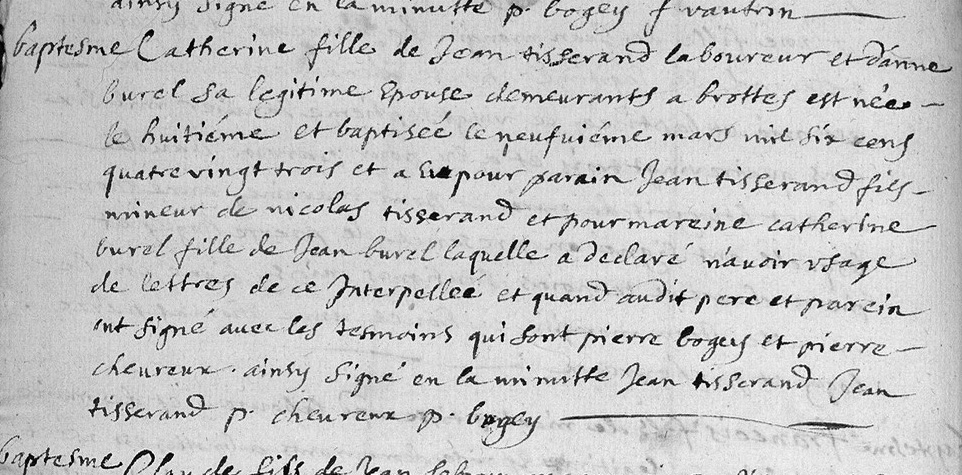 ainsy signé en la minutte p. bogey f vautrin
baptesme Catherine fille de Jean tisserand laboureur et d'anne
burel sa legitime Epouse demeurants a brottes est née
le huitiéme et baptiseé le neufuiéme mars mil six cens
quatre vingt trois et a Eu pour parain Jean tisserand fils
mineur de nicolas tisserand et pour mareine catherine
burel fille de Jean burel laquelle a declaré n'auoir vsage
de lettres de ce Interpelleé et quand audit pere et parein
ont signé auec les tesmoins qui sont pierre bogey et pierre
cheureux . ainsy signé en la minutte Jean tisserand Jean
tisserand p. cheureux p. bogey
baptesme Claude fils de Jean